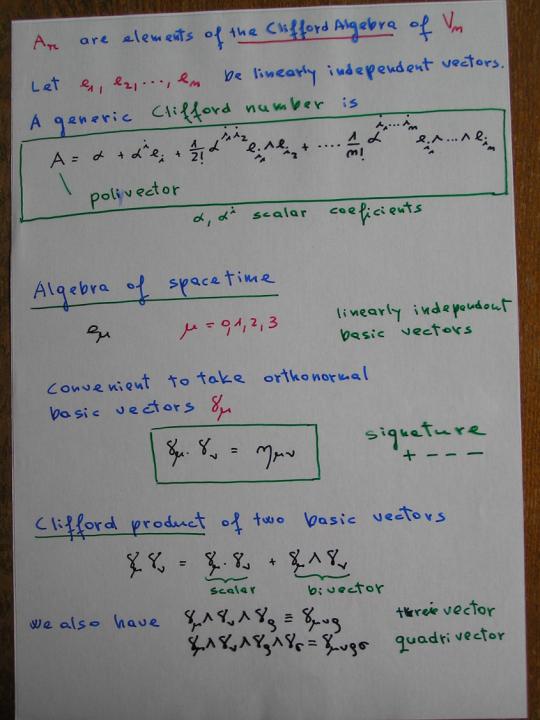 A_r are elements of the Clifford Algebra of V_n
Let e_1, e_2, ..., e_n be linearly independent vectors.
A generic Clifford number is
A = α + α^i e_i + 1/2! α^{i_1 i_2} e_{i_1} ∧ e_{i_2} + .... 1/n! α^{i_1 ... i_n} e_{i_1} ∧ ... ∧ e_{i_n}
polivector
α, α^i scalar coeficients
Algebra of spacetime
e_μ μ = 0,1,2,3 linearly independent
basic vectors
Convenient to take orthonormal
basic vectors γ_μ
γ_μ · γ_ν = η_{μν} signature
+ - - -
Clifford product of two basic vectors
γ_μ γ_ν = γ_μ · γ_ν + γ_μ ∧ γ_ν
scalar bivector
we also have γ_μ ∧ γ_ν ∧ γ_ρ ≡ γ_{μνρ} vector
γ_μ ∧ γ_ν ∧ γ_ρ ∧ γ_σ = γ_{μνρσ} quadrivector